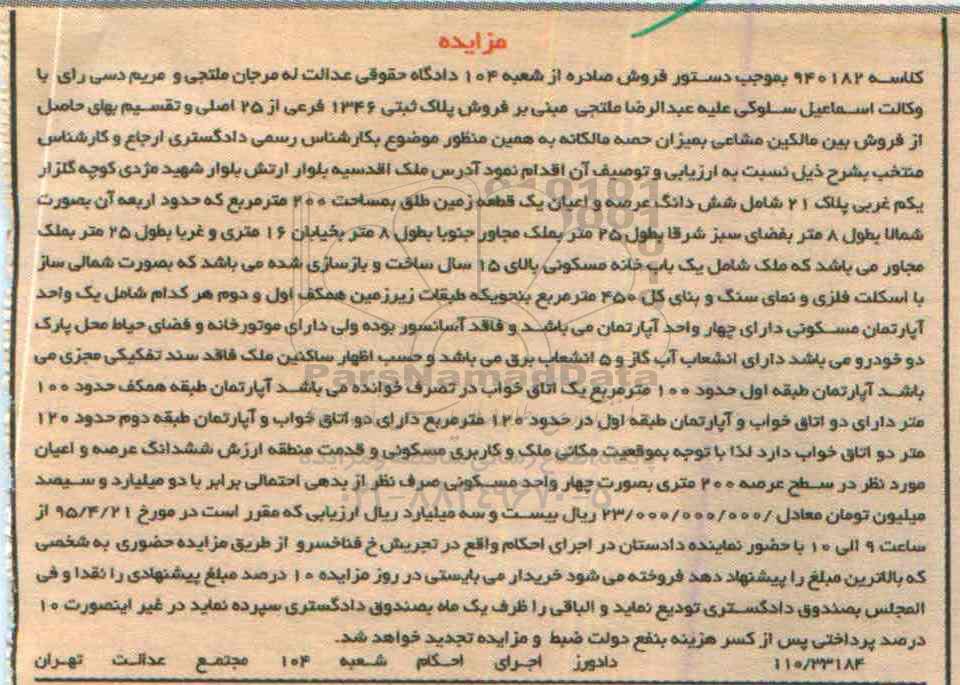 مزایده
کلاسه ۹۴۰۱۸۲ بموجب دستور فروش صادره از شعبه ۱۰۴ دادگاه حقوقی عدالت له مرجان ملتجی و مریم دسی رای با
وکالت اسماعیل سلوکی علیه عبدالرضا ملتجی مبنی بر فروش پلاک ثبتی ۱۳۴۶ فرعی از ۲۵ اصلی و تقسیم بهای حاصل
از فروش بین مالکین مشاعی بمیزان حصه مالکانه به همین منظور موضوع بکارشناس رسمی دادگستری ارجاع و کارشناس
منتخب بشرح ذیل نسبت به ارزیابی و توصیف آن اقدام نمود آدرس ملک اقدسیه بلوار ارتش بلوار شهید مژدی کوچه گلزار
یکم غربی پلاک ۲۱ شامل شش دانگ عرصه و اعیان یک قطعه زمین طلق بمساحت ۲۰۰ مترمربع که حدود اربعه آن بصورت
شمالا بطول ۸ متر بفضای سبز شرقا بطول ۲۵ متر بملک مجاور جنوبا بطول ۸ متر بخیابان ۱۶ متری و غربا بطول ۲۵ متر بملک
مجاور می باشد که ملک شامل یک باب خانه مسکونی بالای ۱۵ سال ساخت و بازسازی شده می باشد که بصورت شمالی ساز
با اسکلت فلزی و نمای سنگ و بنای کل ۴۵۰ مترمربع بنحویکه طبقات زیرزمین همکف اول و دوم هر کدام شامل یک واحد
آپارتمان مسکونی دارای چهار واحد آپارتمان می باشد و فاقد آسانسور بوده ولی دارای موتورخانه و فضای حیاط محل پارک
دو خودرو می باشد دارای انشعاب آب گاز و ۵ انشعاب برق می باشد و حسب اظهار ساکنین ملک فاقد سند تفکیکی مجزی می
باشد آپارتمان طبقه اول حدود ۱۰۰ مترمربع یک اتاق خواب در تصرف خوانده می باشد آپارتمان طبقه همکف حدود ۱۰۰
متر دارای دو اتاق خواب و آپارتمان طبقه اول در حدود ۱۲۰ مترمربع دارای دو اتاق خواب و آپارتمان طبقه دوم حدود ۱۲۰
متر دو اتاق خواب دارد لذا با توجه بموقعیت مکانی ملک و کاربری مسکونی و قدمت منطقه ارزش ششدانگ عرصه و اعیان
مورد نظر در سطح عرصه ۲۰۰ متری بصورت چهار واحد مسکونی صرف نظر از بدهی احتمالی برابر با دو میلیارد و سیصد
میلیون تومان معادل /۲۳/۰۰۰/۰۰۰/۰۰۰ ریال بیست و سه میلیارد ریال ارزیابی که مقرر است در مورخ ۹۵/۴/۲۱ از
ساعت ۹ الی ۱۰ با حضور نماینده دادستان در اجرای احکام واقع در تجریش خ فناخسرو از طریق مزایده حضوری به شخصی
که بالاترین مبلغ را پیشنهاد دهد فروخته می شود خریدار می بایستی در روز مزایده ۱۰ درصد مبلغ پیشنهادی را نقدا و فی
المجلس بصندوق دادگستری تودیع نماید و الباقی را ظرف یک ماه بصندوق دادگستری سپرده نماید در غیر اینصورت ۱۰
درصد پرداختی پس از کسر هزینه بنفع دولت ضبط و مزایده تجدید خواهد شد.
۱۱۰/۳۳۱۸۴ دادورز اجرای احکام شعبه ۱۰۴ مجتمع عدالت تهران
ParsNamadData